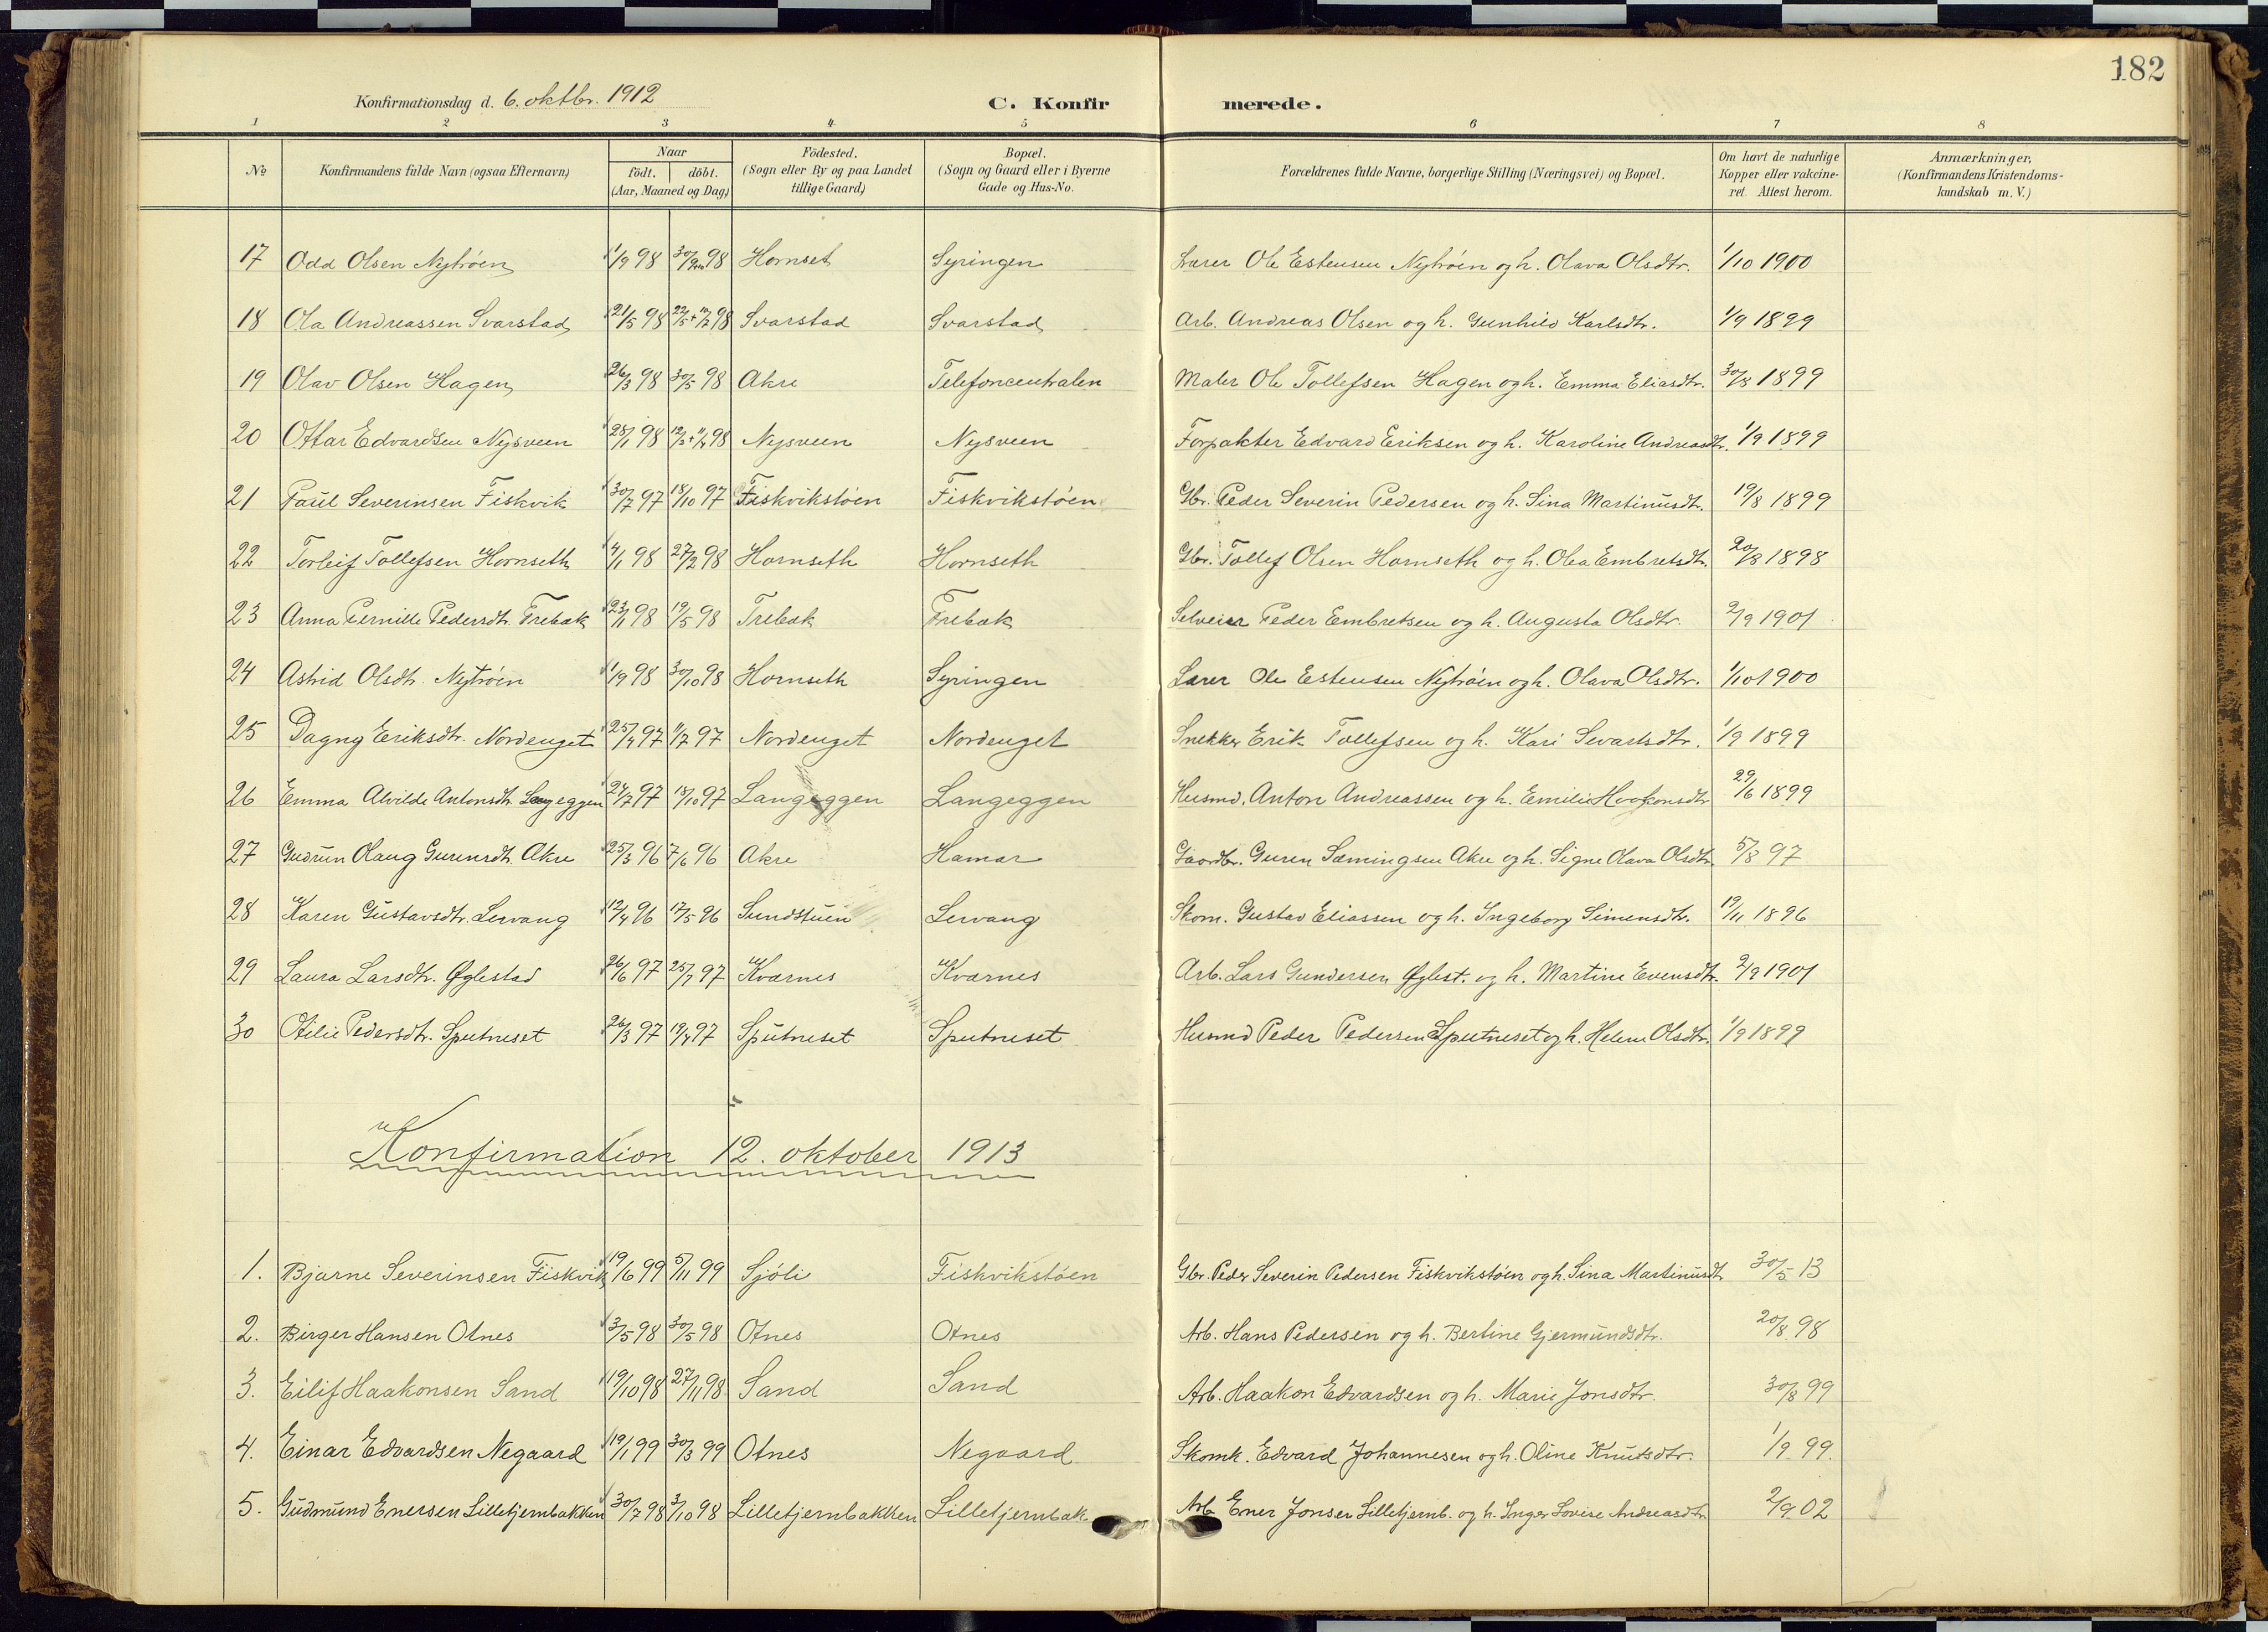 182
Konfirmationsdag d. 6. oktbr. 1912 C. Konfir merede.
1 2 3 4 5 6 7 8
№ Konfirmandens fulde Navn (ogsaa Efternavn) Naar födt. döbt. (Aar, Maaned og Dag) Födested. (Sogn eller By og paa Landet tillige Gaard) Bopæl. (Sogn og Gaard eller i Byerne Gade og Hus-No. Forældrenes fulde Navne, borgerlige Stilling (Næringsvei) og Bopæl. Om havt de naturlige Kopper eller vakcineret. Attest herom. Anmærkninger. (Konfirmandens Kristendomskundskab m. V.)
17 Odd Olsen Nytröen 1/9 98 98 Hornset Syringen Lærer Ole Estensen Nytröen og h. Olava Olsdtr. 1/10 1900
18 Ola Andreassen Svarstad 21/5 98 98 Svarstad Svarstad Arb. Andreas Olsen og h. Gunhild Karlsdtr. 1/9 1899
19 Olav Olsen Hagen 26/3 98 30/5 98 Akre Telefoncentralen Maler Ole Tollefsen Hagen og h. Emma Eliasdtr. 30/8 1899
20 Ottar Edvardsen Nysveen 28/1 98 98 Nysveen Nysveen Forpakter Edvard Eriksen og h. Karoline Andreasdtr. 1/9 1899
21 Paul Severinsen Fiskvik 30/7 97 18/10 97 Fiskvikstöen Fiskvikstöen Gbr. Peder Severin Pedersen og h. Sina Martinusdtr. 19/8 1899
22 Torleif Tollefsen Hornseth 4/1 98 27/2 98 Hornseth Hornseth Gbr. Tollef Olsen Hornseth og h. Olea Embretsdtr. 20/8 1898
23 Anna Pernille Pedersdtr. Trebæk 23/1 98 19/5 98 Trebæk Trebæk Selveier Peder Embretsen og h. Augusta Olsdtr. 2/9 1901
24 Astrid Olsdtr. Nytröen 1/9 98 30/10 98 Hornseth Syringen Lærer Ole Estensen Nytröen og h. Olava Olsdtr. 1/10 1900
25 Dagny Eriksdtr. Nordenget 25/4 97 11/7 97 Nordenget Nordenget Snekker Erik Tollefsen og h. Kari Sivartsdtr. 1/9 1899
26 Emma Alvilde Antonsdtr. Langeggen 24/7 97 18/10 97 Langeggen Langeggen Husmd. Anton Andreassen og h. Emilie Haakonsdtr 29/6 1899
27 Gudrun Olaug Gurensdtr. Akre 25/3 96 7/6 96 Akre Hamar Gaardbr. Guren Sæmingsen Akre og h. Signe Olava Olsdtr. 5/8 97
28 Karen Gustavsdtr. Lervang 12/4 96 17/5 96 Sundstuen Lervang Skom. Gustav Eliassen og h. Ingeborg Simensdtr. 19/11 1896
29 Laura Larsdtr. Øglestad 26/6 97 25/7 97 Kværnes Kværnes Arb. Lars Gundersen Øglest. og h. Martine Evensdtr. 2/9 1901
30 Otilie Pedersdtr. Sputneset 26/3 97 19/4 97 Sputneset Sputneset Husmd Peder Pedersen Sputneset og h. Helene Olsdtr. 1/9 1899
Konfirmation 12. oktober 1913
1. Bjarne Severinsen Fiskvik 19/6 99 5/11 99 Sjöli Fiskvikstöen Gbr. Peder Severin Pedersen Fiskvikstöen og h. Sina Martinusdtr 30/5 13
2. Birger Hansen Otnes 3/5 98 30/5 98 Otnes Otnes Arb. Hans Pedersen og h. Bertine Gjermundsdtr. 20/8 98
3. Eilif Haakonsen Sand 19/10 98 27/11 98 Sand Sand Arb. Haakon Edvardsen og h. Marie Jonsdtr. 30/8 99
4. Einar Edvardsen Negaard 19/1 99 30/3 99 Otnes Negaard Skomk. Edvard Johannesen og h. Oline Knutsdtr. 1/9 99.
5. Gudmund Enersen Lilletjernbakken 30/7 98 3/10 98 Lilletjernbakken Lilletjernbak. Arb Ener Jonsen Lilletjernb. og h. Inger Lovise Andreasdtr 2/9 02